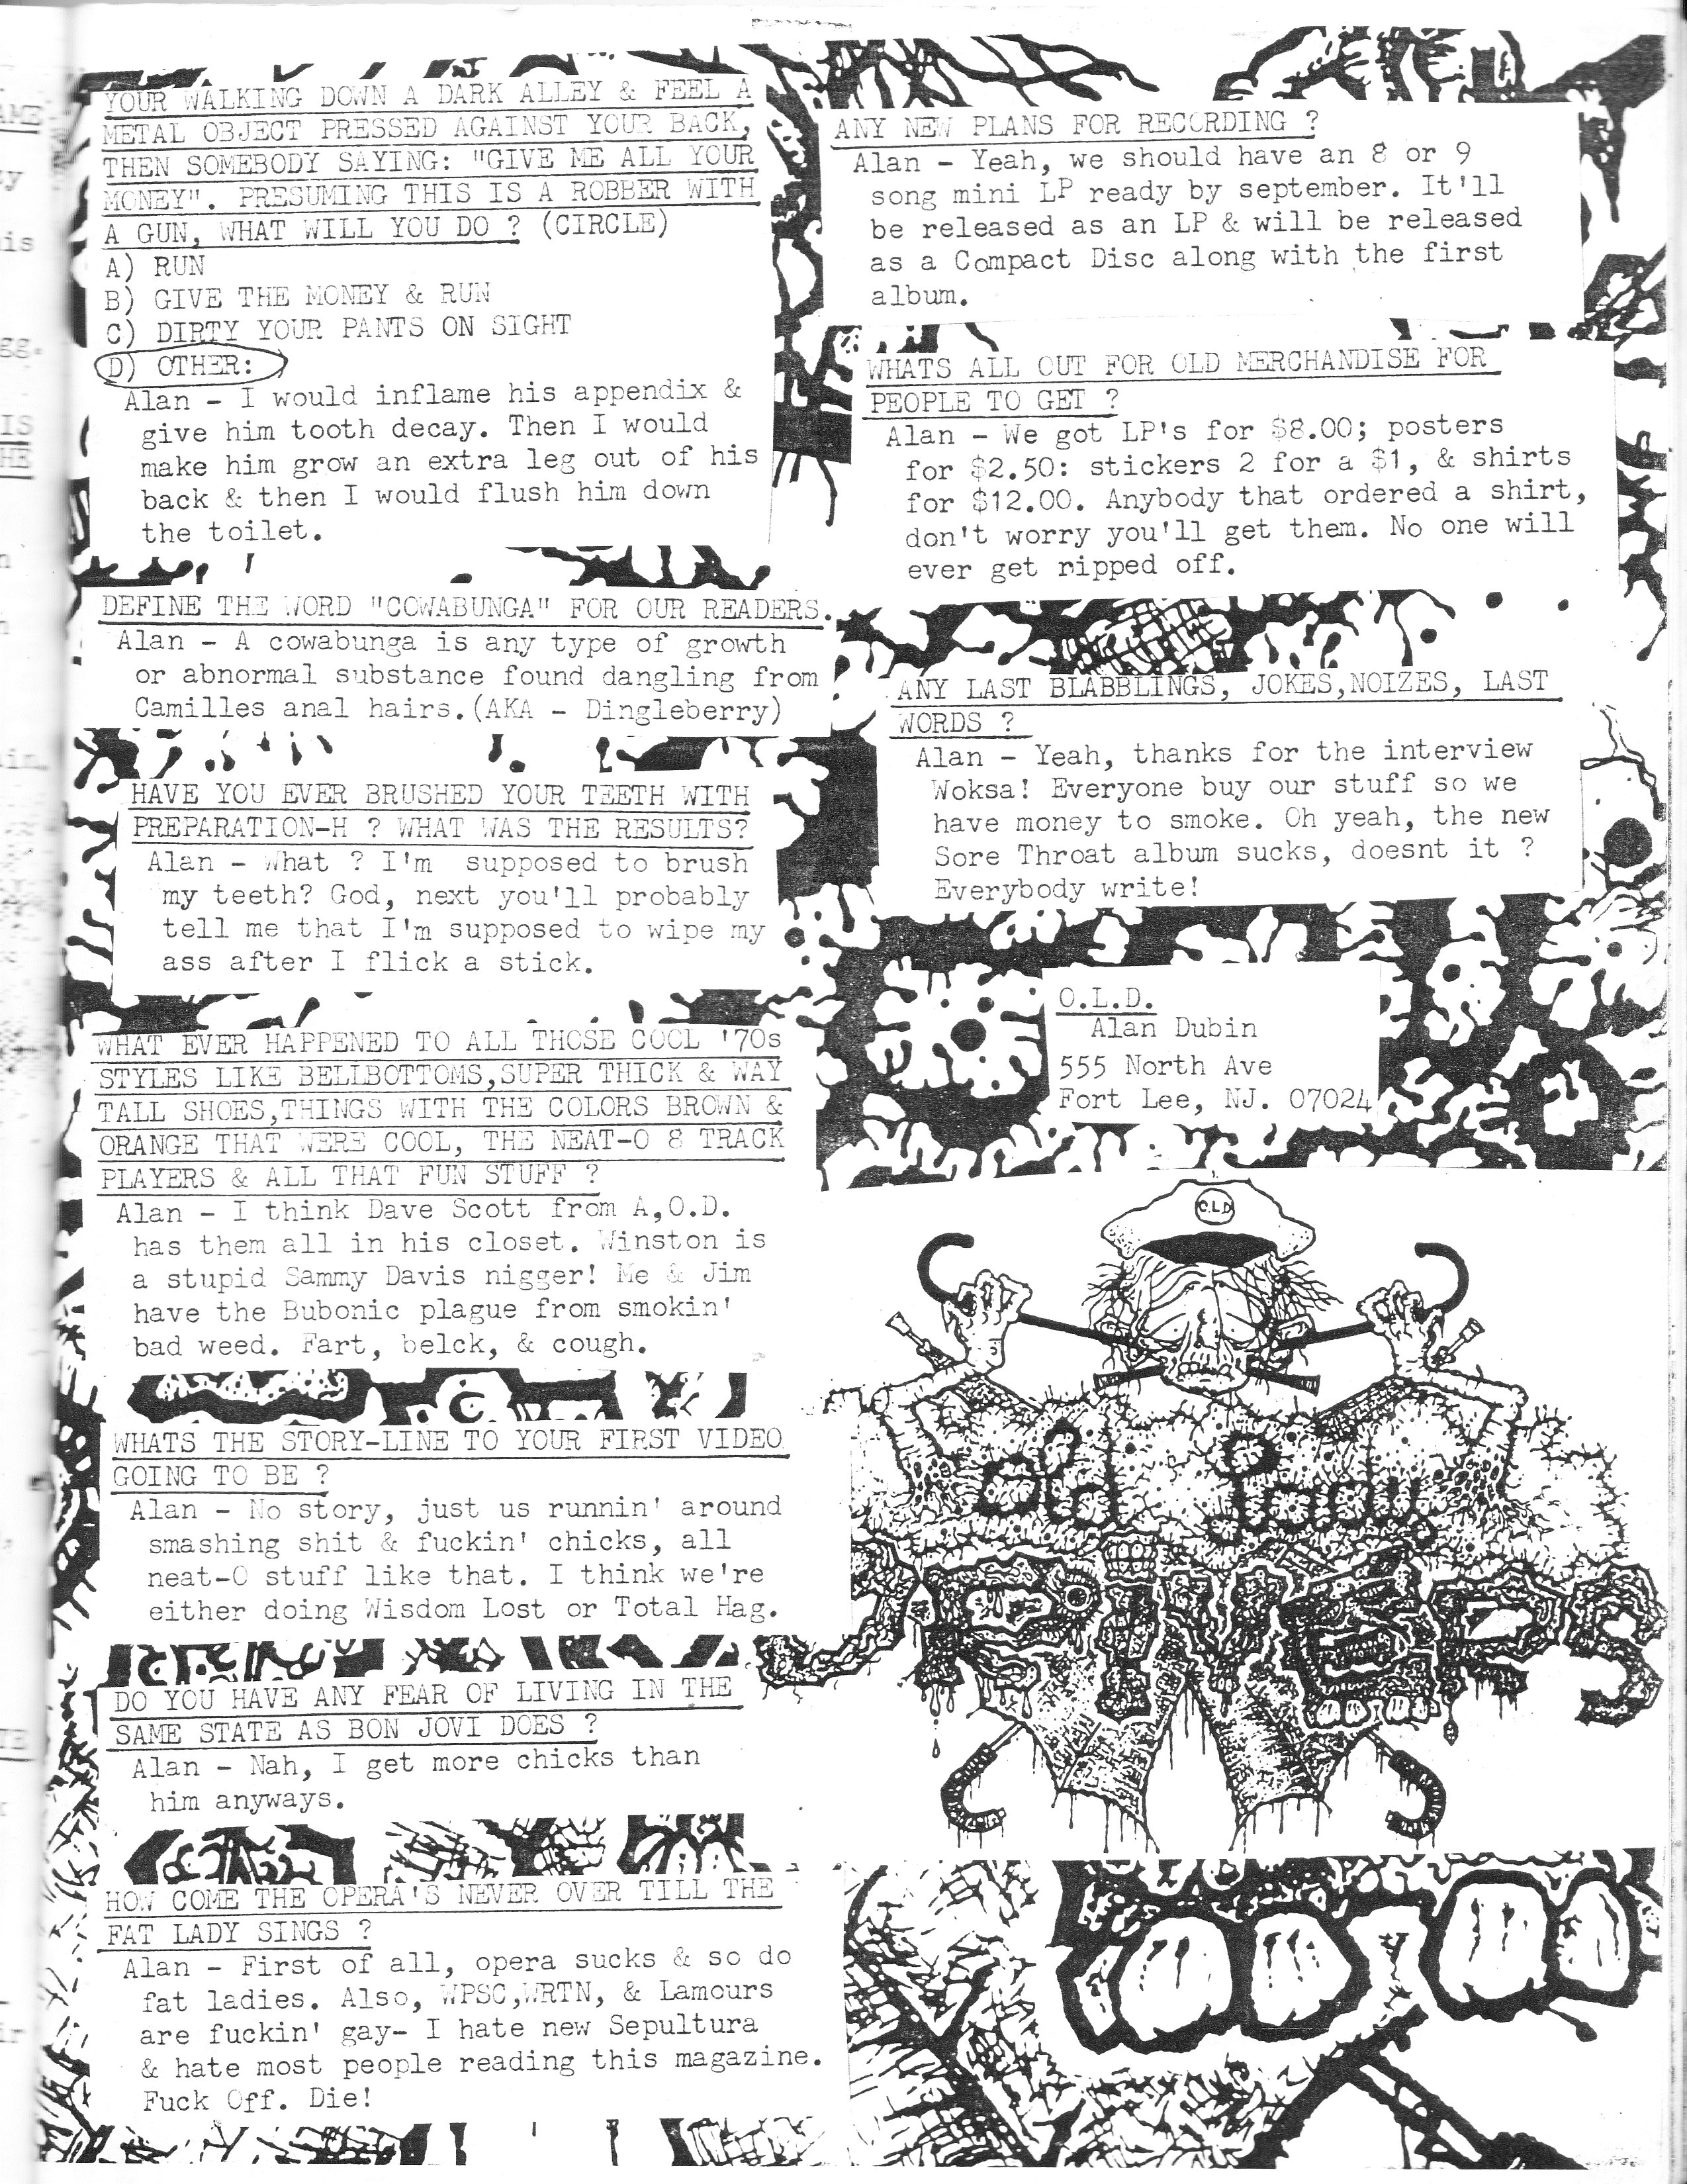 YOUR WALKING DOWN A DARK ALLEY & FEEL A
METAL OBJECT PRESSED AGAINST YOUR BACK,
THEN SOMEBODY SAYING: "GIVE ME ALL YOUR
MONEY". PRESUMING THIS IS A ROBBER WITH
A GUN, WHAT WILL YOU DO ? (CIRCLE)
A) RUN
B) GIVE THE MONEY & RUN
C) DIRTY YOUR PANTS ON SIGHT
D) OTHER:
Alan - I would inflame his appendix &
give him tooth decay. Then I would
make him grow an extra leg out of his
back & then I would flush him down
the toilet.
DEFINE THE WORD "COWABUNGA" FOR OUR READERS.
Alan - A cowabunga is any type of growth
or abnormal substance found dangling from
Camilles anal hairs.(AKA - Dingleberry)
HAVE YOU EVER BRUSHED YOUR TEETH WITH
PREPARATION-H ? WHAT WAS THE RESULTS?
Alan - What ? I'm supposed to brush
my teeth? God, next you'll probably
tell me that I'm supposed to wipe my
ass after I flick a stick.
WHAT EVER HAPPENED TO ALL THOSE COOL '70s
STYLES LIKE BELLBOTTOMS,SUPER THICK & WAY
TALL SHOES,THINGS WITH THE COLORS BROWN &
ORANGE THAT WERE COOL, THE NEAT-O 8 TRACK
PLAYERS & ALL THAT FUN STUFF ?
Alan - I think Dave Scott from A,O.D.
has them all in his closet. Winston is
a stupid Sammy Davis nigger! Me & Jim
have the Bubonic plague from smokin'
bad weed. Fart, belck, & cough.
WHATS THE STORY-LINE TO YOUR FIRST VIDEO
GOING TO BE ?
Alan - No story, just us runnin' around
smashing shit & fuckin' chicks, all
neat-O stuff like that. I think we're
either doing Wisdom Lost or Total Hag.
DO YOU HAVE ANY FEAR OF LIVING IN THE
SAME STATE AS BON JOVI DOES ?
Alan - Nah, I get more chicks than
him anyways.
HOW COME THE OPERA'S NEVER OVER TILL THE
FAT LADY SINGS ?
Alan - First of all, opera sucks & so do
fat ladies. Also, WPSC,WRTN, & Lamours
are fuckin' gay- I hate new Sepultura
& hate most people reading this magazine.
Fuck Off. Die!
ANY NEW PLANS FOR RECORDING ?
Alan - Yeah, we should have an 8 or 9
song mini LP ready by september. It'll
be released as an LP & will be released
as a Compact Disc along with the first
album.
WHATS ALL OUT FOR OLD MERCHANDISE FOR
PEOPLE TO GET ?
Alan - We got LP's for $8.00; posters
for $2.50: stickers 2 for a $1, & shirts
for $12.00. Anybody that ordered a shirt,
don't worry you'll get them. No one will
ever get ripped off.
ANY LAST BLABBLINGS, JOKES,NOIZES, LAST
WORDS ?
Alan - Yeah, thanks for the interview
Woksa! Everyone buy our stuff so we
have money to smoke. Oh yeah, the new
Sore Throat album sucks, doesnt it ?
Everybody write!
O.L.D.
Alan Dubin
555 North Ave
Fort Lee, NJ. 07024
O.L.D
old lady